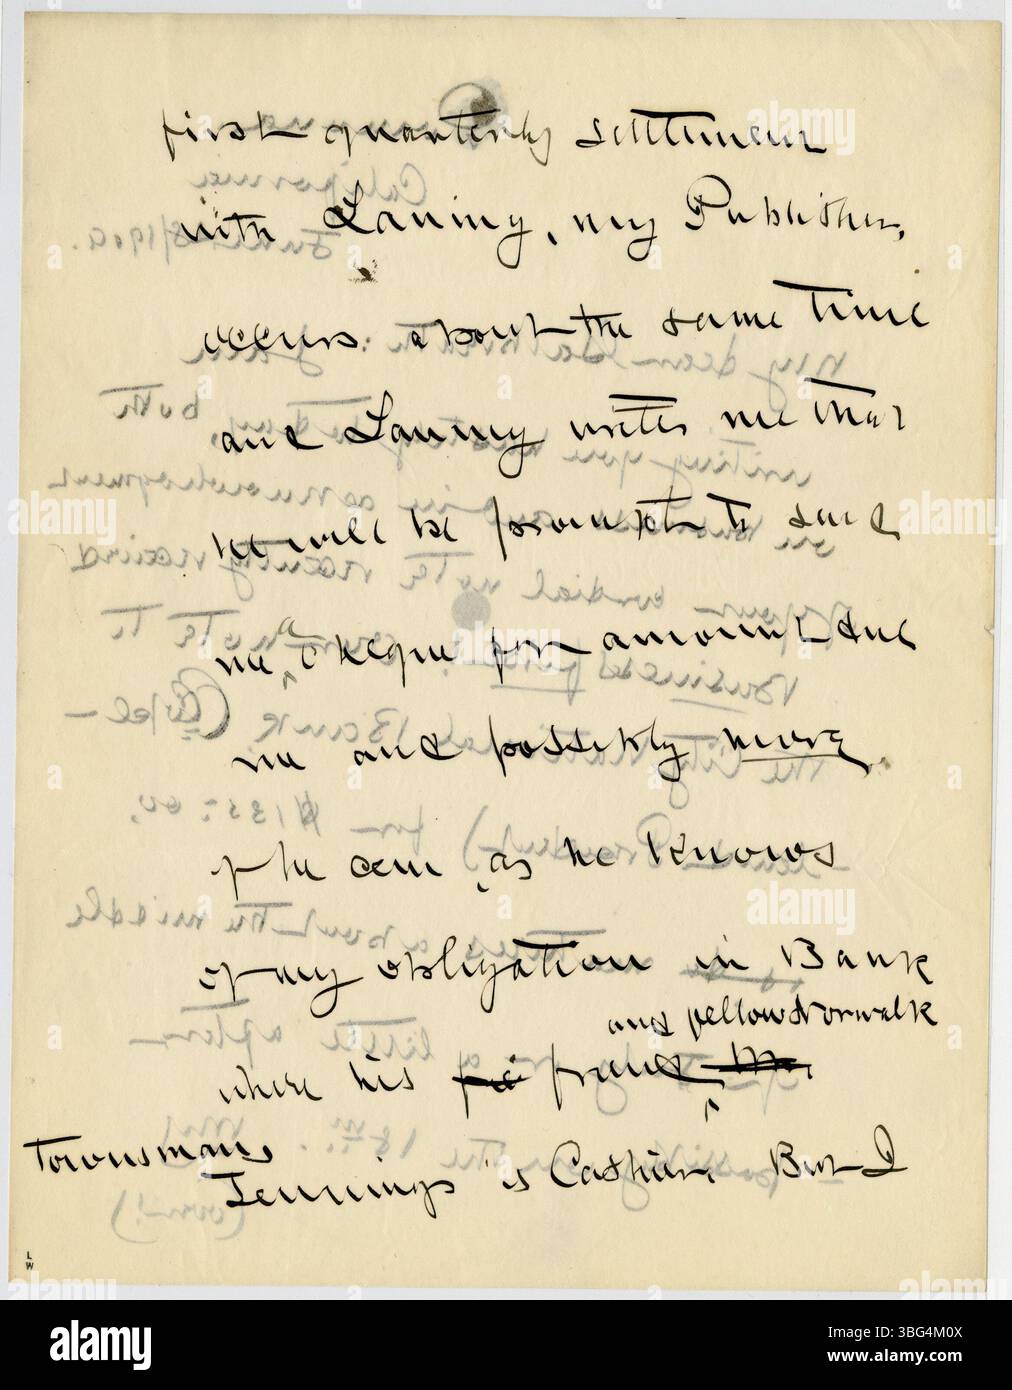 first quarterly settlement
with Laning, my Publisher,
occurs about the same time
and Laning writes me that
he will be prompt to send
me a cheque for amount due
me and possibly more,
of he can, as he knows
of my obligation in Bank
and fellow Norwalk
where his friend
Townsman,
Jennings is Cashier. But I
L
W
alamy
Image ID: 3BG4M0X
www.alamy.com